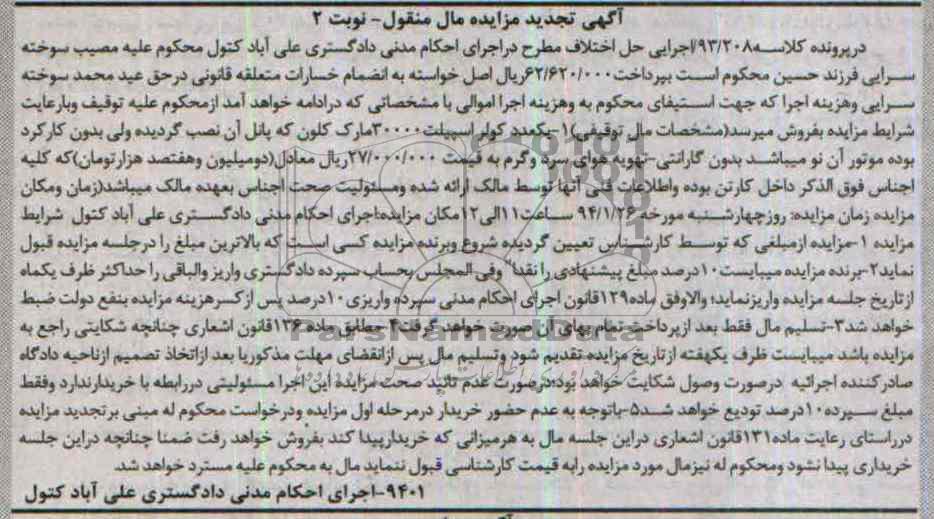 آگهی تجدید مزایده مال منقول- نوبت ۲
درپرونده کلاسه۹۳/۲۰۸اجرایی حل اختلاف مطرح دراجرای احکام مدنی دادگستری علی آباد کتول محکوم علیه مصیب سوخته
سرایی فرزند حسین محکوم است بپرداخت۶۲/۶۲۰/۰۰۰ریال اصل خواسته به انضمام خسارات متعلقه قانونی درحق عید محمد سوخته
سرایی وهزینه اجرا که جهت استیفای محکوم به وهزینه اجرا اموالی با مشخصاتی که درادامه خواهد آمد ازمحکوم علیه توقیف وبارعایت
شرایط مزایده بفروش میرسد(مشخصات مال توقیفی)۱-یکعدد کولر اسپیلت۳۰۰۰۰مارک کلون که پانل آن نصب گردیده ولی بدون کارکرد
بوده موتور آن نو میباشد بدون گارانتی-تهویه هوای سرد وگرم به قیمت ۲۷/۰۰۰/۰۰۰ریال معادل(دومیلیون وهفتصد هزارتومان)که کلیه
اجناس فوق الذکر داخل کارتن بوده واطلاعات فنی آنها توسط مالک ارائه شده ومسئولیت صحت اجناس بعهده مالک میباشد(زمان ومکان
مزایده زمان مزایده: روزچهارشنبه مورخه ۹۴/۱/۲۶ ساعت۱۱الی۱۲مکان مزایده:اجرای احکام مدنی دادگستری علی آباد کتول شرایط
مزایده ۱-مزایده ازمبلغی که توسط کارشناس تعیین گردیده شروع وبرنده مزایده کسی است که بالاترین مبلغ را درجلسه مزایده قبول
نماید۲-برنده مزایده میبایست۱۰درصد مبلغ پیشنهادی را نقدا" وفی المجلس بحساب سپرده دادگستری واریز والباقی را حداکثر ظرف یکماه
ازتاریخ جلسه مزایده واریزنماید؛ والاوفق ماده۱۲۹قانون اجرای احکام مدنی سپرده واریزی۱۰درصد پس ازکسرهزینه مزایده بنفع دولت ضبط
خواهد شد۳-تسلیم مال فقط بعد ازپرداخت تمام بهای آن صورت خواهد گرفت۴-مطابق ماده ۱۳۶قانون اشعاری چنانچه شکایتی راجع به
مزایده باشد میبایست ظرف یکهفته ازتاریخ مزایده تقدیم شود وتسلیم مال پس ازانقضای مهلت مذکوریا بعد ازاتخاذ تصمیم ازناحیه دادگاه
صادرکننده اجرائیه درصورت وصول شکایت خواهد بود؛درصورت عدم تائید صحت مزایده این اجرا مسئولیتی دررابطه با خریدارندارد وفقط
مبلغ سپرده۱۰درصد تودیع خواهد شد۵-باتوجه به عدم حضور خریدار درمرحله اول مزایده ودرخواست محکوم له مبنی برتجدید مزایده
درراستای رعایت ماده۱۳۱قانون اشعاری دراین جلسه مال به هرمیزانی که خریدارپیدا کند بفروش خواهد رفت ضمنا چنانچه دراین جلسه
خریداری پیدا نشود ومحکوم له نیزمال مورد مزایده رابه قیمت کارشناسی قبول ننماید مال به محکوم علیه مسترد خواهد شد.
۹۴۰۱-اجرای احکام مدنی دادگستری علی آباد کتول
ParsNamadData